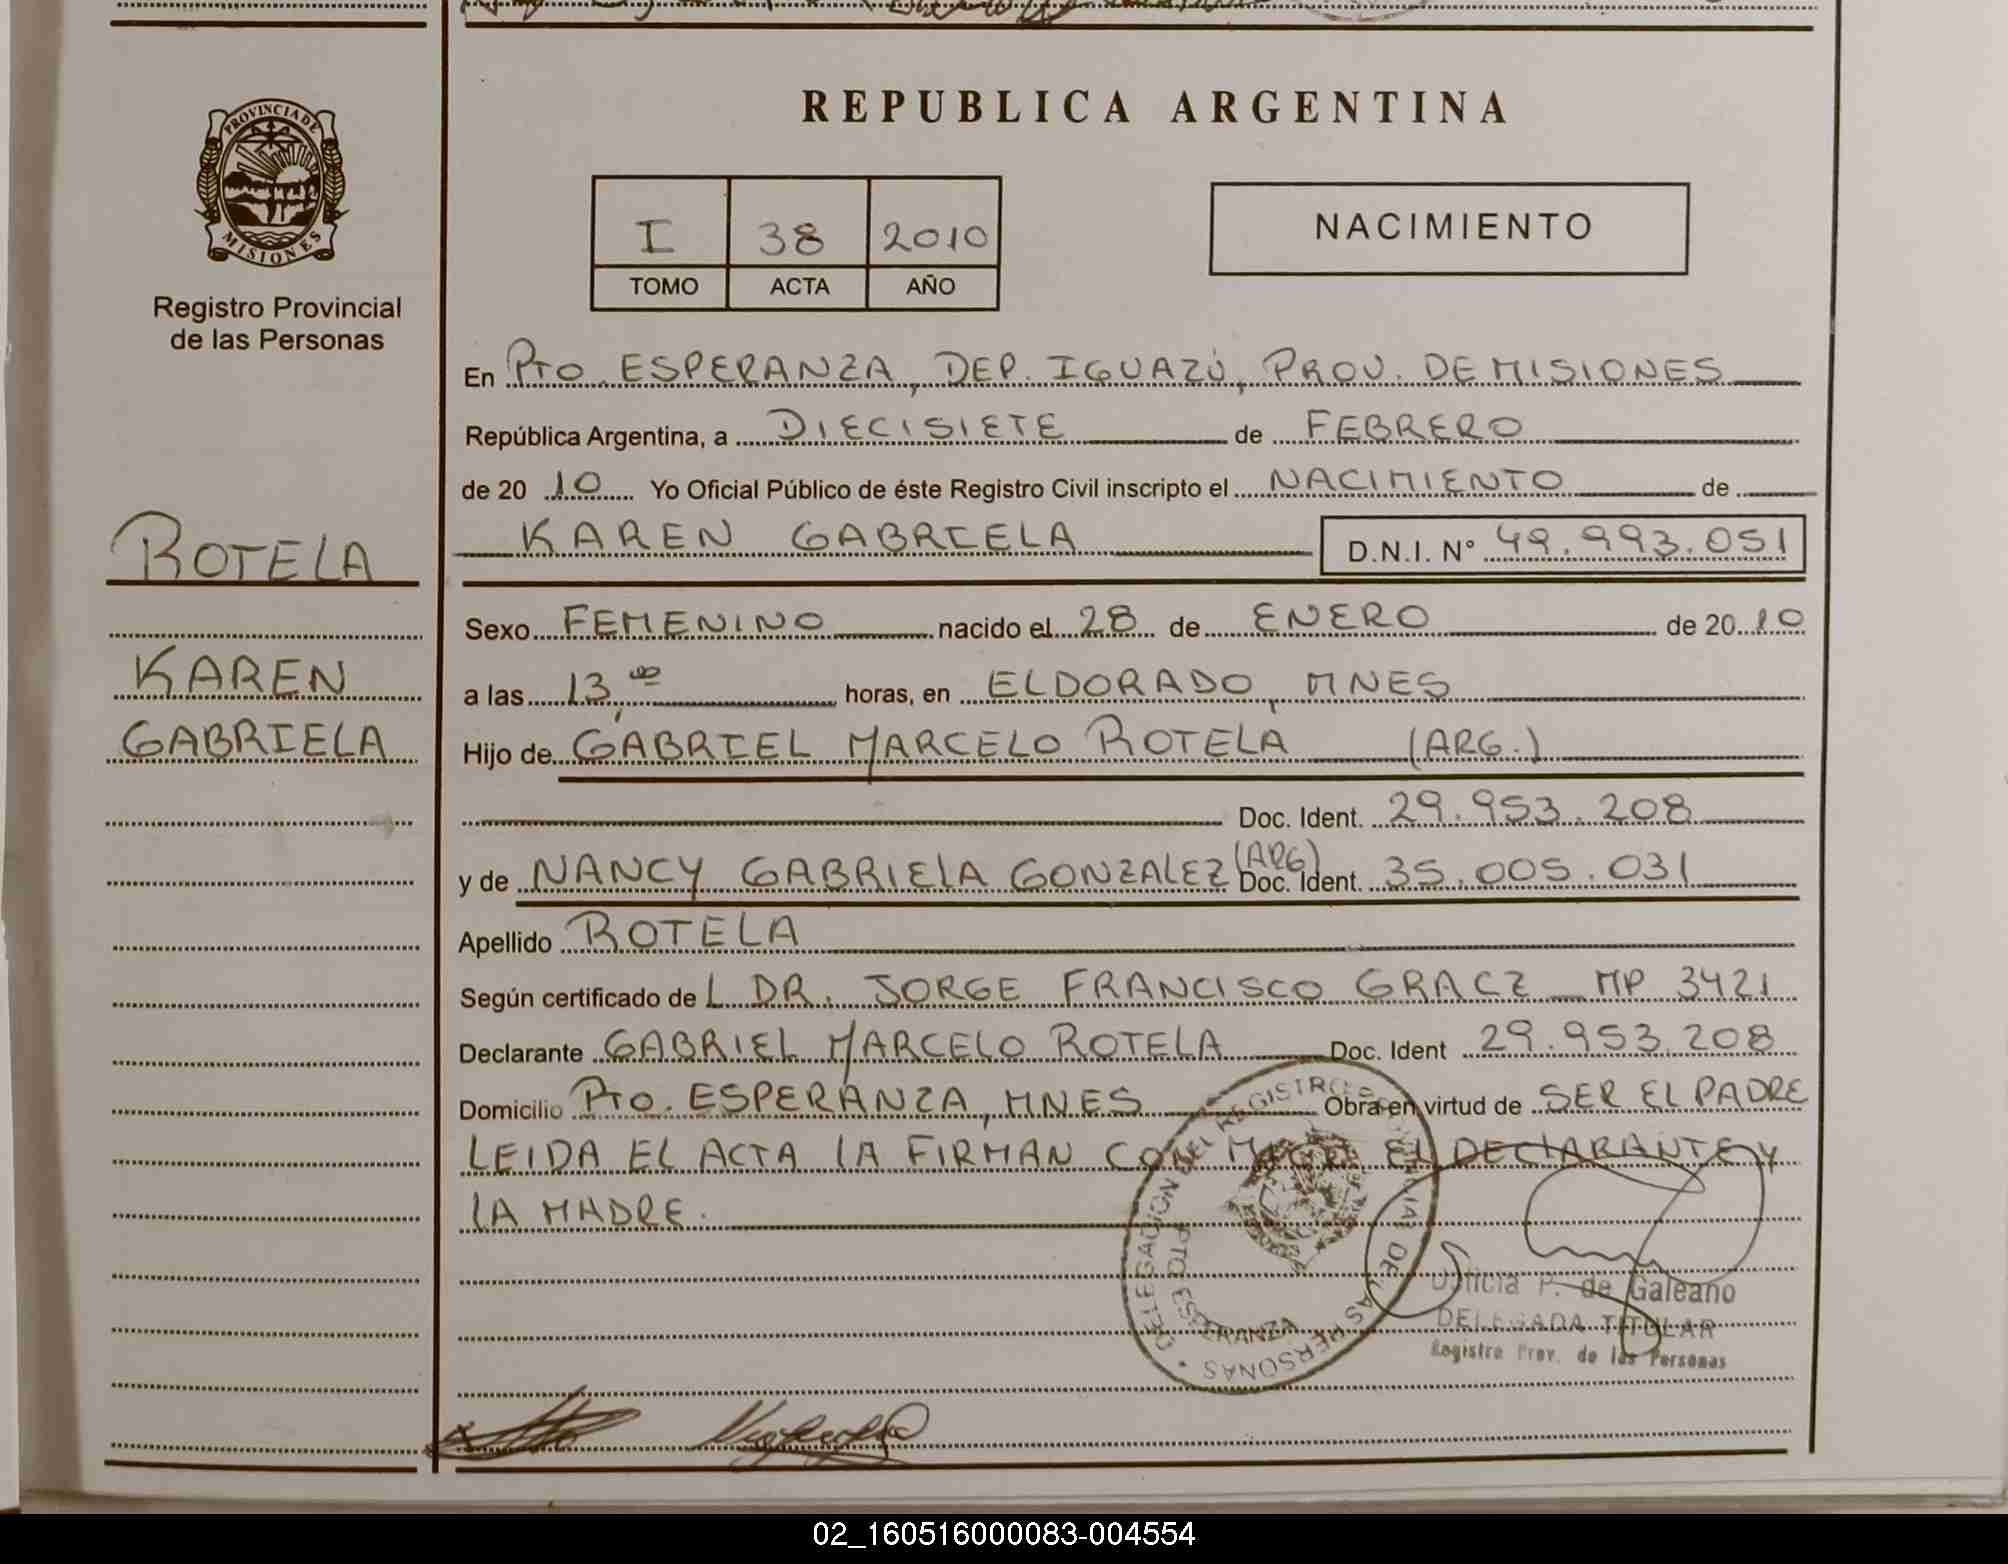 PROVINCIA DE
MISIONES
Registro Provincial
de las Personas
ROTELA
KAREN
GABRIELA
REPUBLICA ARGENTINA
I 38 2010
TOMO ACTA AÑO
NACIMIENTO
En Pto. ESPERANZA, DEP. IGUAZÚ, PROV. DE MISIONES
República Argentina, a DIECISIETE de FEBRERO
de 20 10 Yo Oficial Público de éste Registro Civil inscripto el NACIMIENTO de
KAREN GABRIELA D.N.I. N° 49.993.051
Sexo FEMENINO nacido el 28 de ENERO de 20 10
a las 13,00 horas, en ELDORADO, MNES
Hijo de GABRIEL MARCELO ROTELA (ARG.)
Doc. Ident. 29.953.208
y de NANCY GABRIELA GONZALEZ (ARG) Doc. Ident. 35.005.031
Apellido ROTELA
Según certificado de L DR. JORGE FRANCISCO GRACZ MP 3421
Declarante GABRIEL MARCELO ROTELA Doc. Ident 29.953.208
Domicilio Pto. ESPERANZA, MNES Obra en virtud de SER EL PADRE
LEIDA EL ACTA LA FIRMAN CON EL DECLARANTE Y
LA MADRE.
DELEGACION DEL REGISTRO DE LAS PERSONAS
PTO. ESPERANZA
P. de Galeano
DELEGADA TITULAR
Registro Prov. de las Personas
02_160516000083-004554